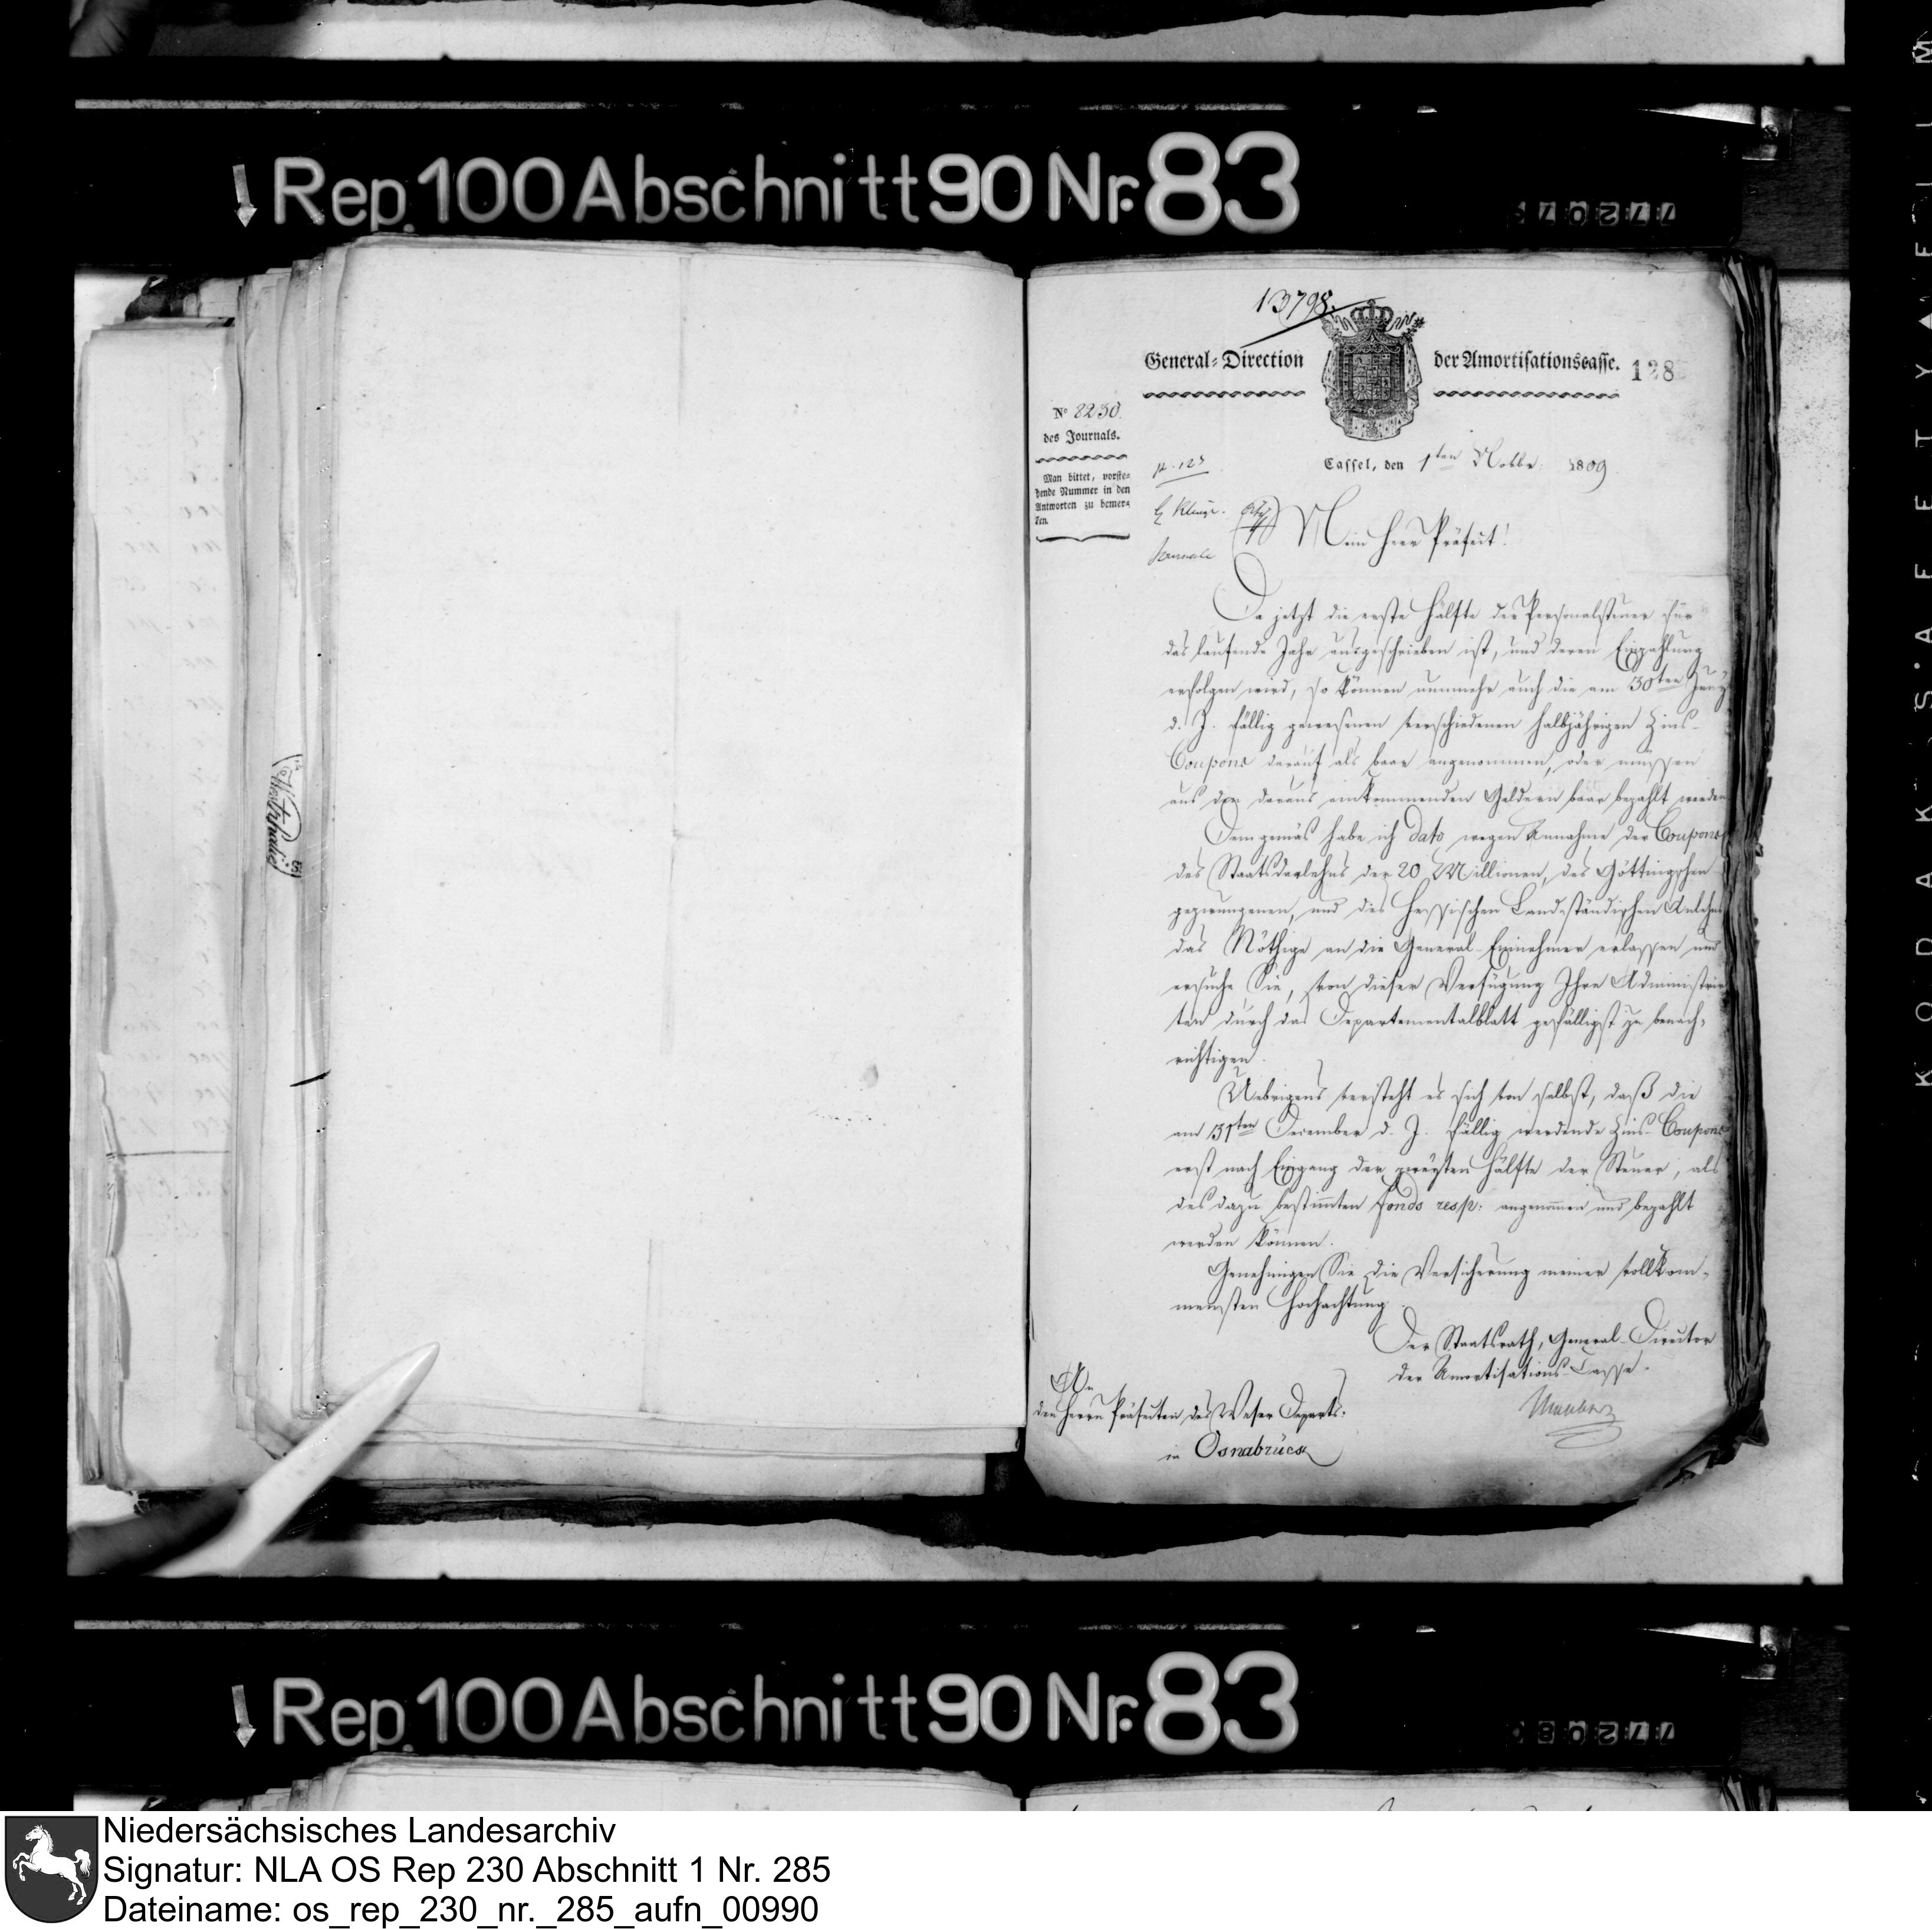 Rep. 100 Abschnitt 90 Nr. 83
13798.
General-Direction der Amortisationscasse. 128
No 2230.
des Journals.
Man bittet, vorste-
hende Nummer in den
Antworten zu bemer-
ken.
Cassel, den 1ten Novbr. 1809
Mein Herr Präfect!
Da jetzt die erste Hälfte der Personalsteuer für
das laufende Jahr ausgeschrieben ist, und deren Einzahlung
erfolgen wird, so können nunmehr auch die am 30ten Juny
d. J. fällig gewesenen verschiedenen halbjährigen Zins-
Coupons darauf als baar angenommen, oder müssen
aus den daraus einkommenden Geldern baar bezahlt werden
Demgemäs habe ich dato wegen Annahme der Coupons
des Staatsdarlehns der 20 Millionen, des Göttingschen
gezwungenen, und des Hessischen Landständischen Anlehns
das Nöthige an die General-Einnehmer erlassen und
ersuche Sie, von dieser Verfügung Ihre Administrir
ten durch das Departementalblatt gefälligst zu benach-
richtigen.
Uebrigens versteht es sich von selbst, daß die
am 31ten December d. J. fällig werdende Zins-Coupons
erst nach Eingang der zweyten Hälfte der Steuer, als
des dazu bestimmten Fonds resp: angenommen und bezahlt
werden können.
Genehmigen Sie die Versicherung meiner vollkom-
mensten Hochachtung
Der Staatsrath, General-Director
der Amortisations-Casse.
An
den Herrn Präfecten des Weser Departs.
in Osnabrück
Rep. 100 Abschnitt 90 Nr. 83
Niedersächsisches Landesarchiv
Signatur: NLA OS Rep 230 Abschnitt 1 Nr. 285
Dateiname: os_rep_230_nr._285_aufn_00990